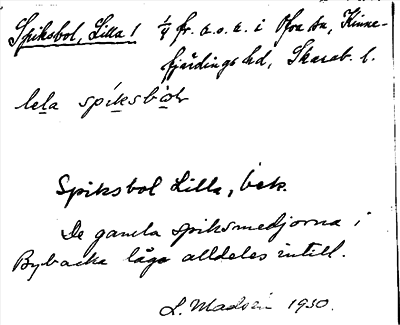 Spiksbol, Lilla 1 1/4 fr. a.o.e. i Ova sn, Kinne-
fjärdings hd, Skarab. l.
lela spiksbol
Spiksbol Lilla, bek.
De gamla spiksmedjorna i
Bybacka låga alldeles intill.
L. Modin 1930.